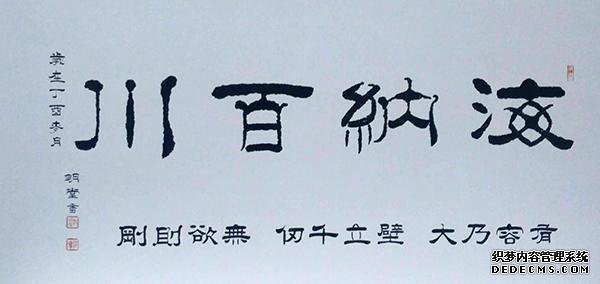 海納百川
有容乃大 壁立千仞 無欲則剛
歲在丁酉冬月
明堂書
织梦内容管理系统
DEDECMS.COM